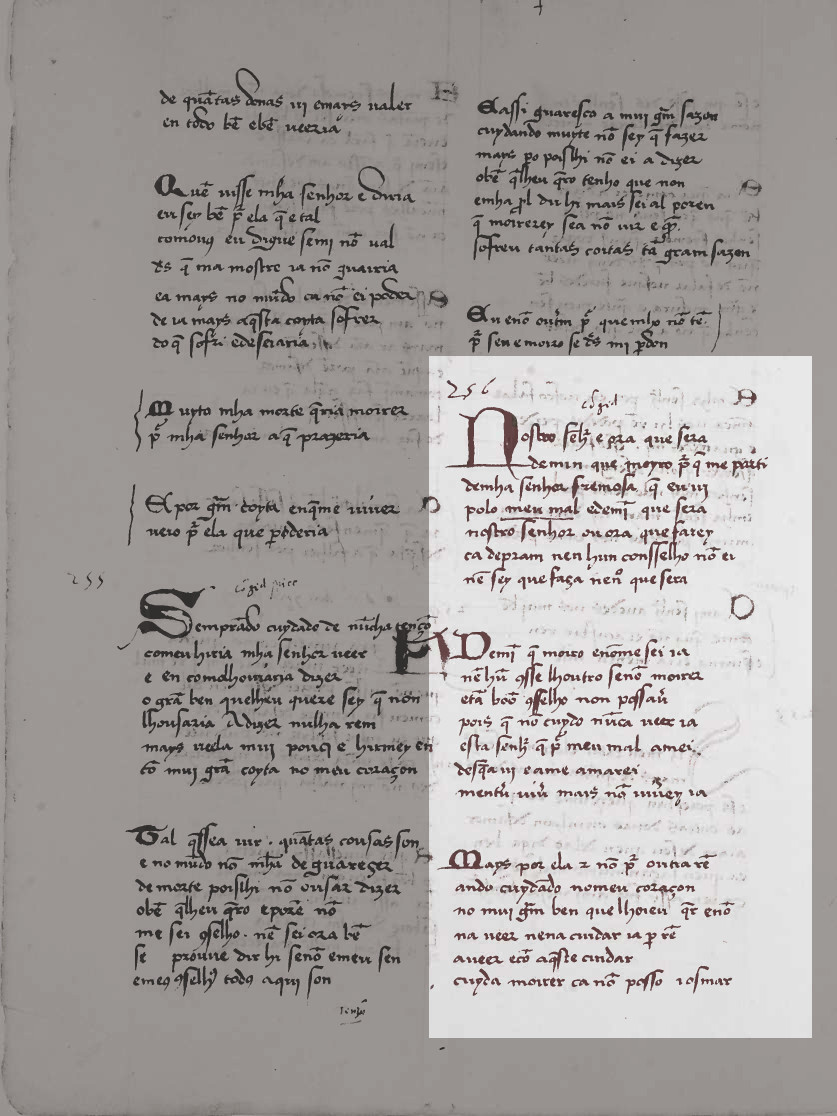 de quãtas donas ui emays ualer
en todo bẽ ebẽ ueeria
Quẽ uisse mha senhor e diria
eu sey bẽ pʳ ela q̃ e tal
comous eu digue semi nõ ual
ds̃ q̃ ma mostre ia nõ guarria
ea mays no mũdo ca nõ ei poder
de ia mays aq̃sta coyta sofrer
do q̃ sofri edeseiaria
Muyto mha morte q̃ria moirer
pʳ mha senhor a q̃ prazeria
El por grm̃ coyta enq̃me uiuer
ueio pʳ ela que perderia
255
Semprãdo cuydãdo de
comeu hiria mha senhor ueer
e en comolhousaria dizer
o grã ben quelheu quero sey q̃ non
lhousaria dizer nulha rem
mays ueela mui pouq̃ e hirmey en
cõ mui grã coyta no meu coraçon
Tal q̃ssea uir . quãtas cousas son
e no mũdo nõ mhã de guareçer
de morte poislhi nõ ousar dizer
obẽ q̃lheu q̃ro eporẽ nõ
me sei 9selho . nẽ sei ora bẽ
se prouue dir hi senõ emeu sen
emeus 9selhos todos aqui son
Eassi guaresco a mui grm̃ sazon
cuydando muyto nõ sey q̃ fazer
mays po poislhi nõ ei a dizer
obẽ q̃lheu q̃ro tenho que non
emha prol dir hi mais sei al poren
q̃ moirerey sea nõ uir e
sofreu tantas coitas tã gram sazon
Eu enõ outrm̃ pʳ que mho nõ tẽ
pʳ seu e moiro se ds̃ mi perdon
256
Nostro senhʳ e ora que sera
demin que moyro pʳ q̃ me parti
demha senhor fremosa q̃ eu ui
polo meu mal edemĩ que sera
nostro senhor ou ora que farey
ca depram nen hun consselho nõ ei
nẽ sey que faça nen o que sera
Demĩ q̃ moiro enõme sei ia
nẽ hũ 9sselhoutro senõ moirer
etã boõ 9sselho non possau
pois q̃ nõ cuydo nũca ueer ia
esta senhʳ q̃ pʳ meu mal amei
desq̃a ui e ame amarei
mentr̃ uiu mais nõ uiuerey ia
Mays por ela z nõ pʳ outra rẽ
ando cuydãdo nomeu coraçon
no mui grm̃ ben que lhoieu q̃r enõ
na ueer nena cuidar ia per rẽ
aueer ecõ aq̃ste cuidar
cuyda moirer ca nõ posso iosmar